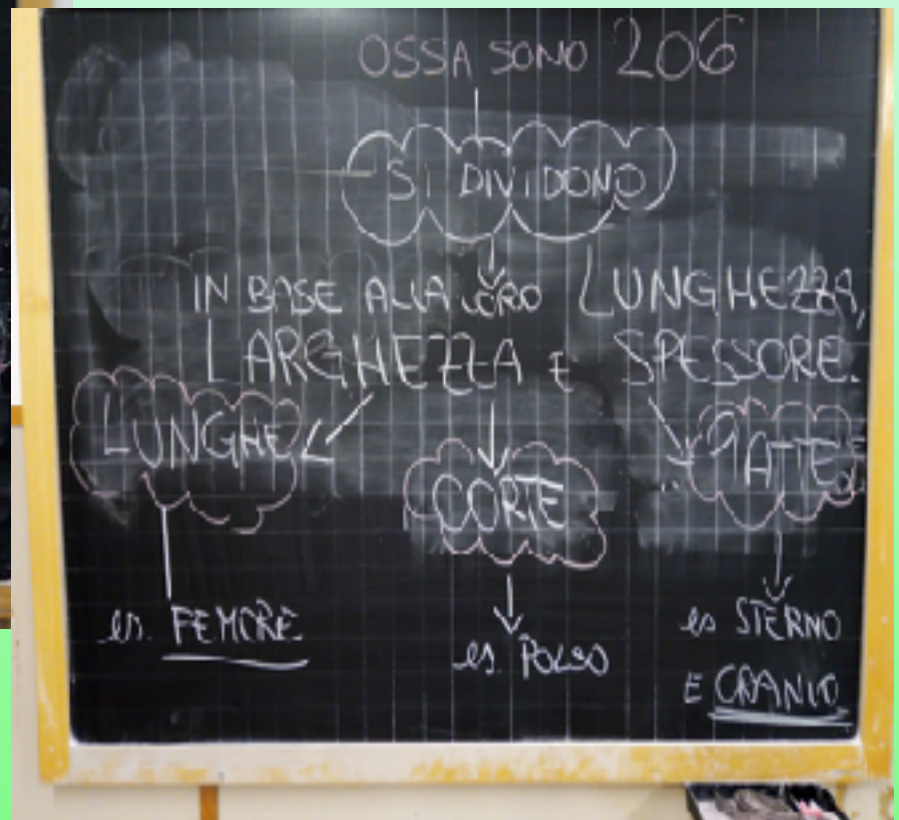 OSSA SONO 206
SI DIVIDONO
IN BASE ALLA LORO LUNGHEZZA,
LARGHEZZA E SPESSORE.
LUNGHE
CORTE
PIATTE
es. FEMORE
es. POLSO
es STERNO
E CRANIO